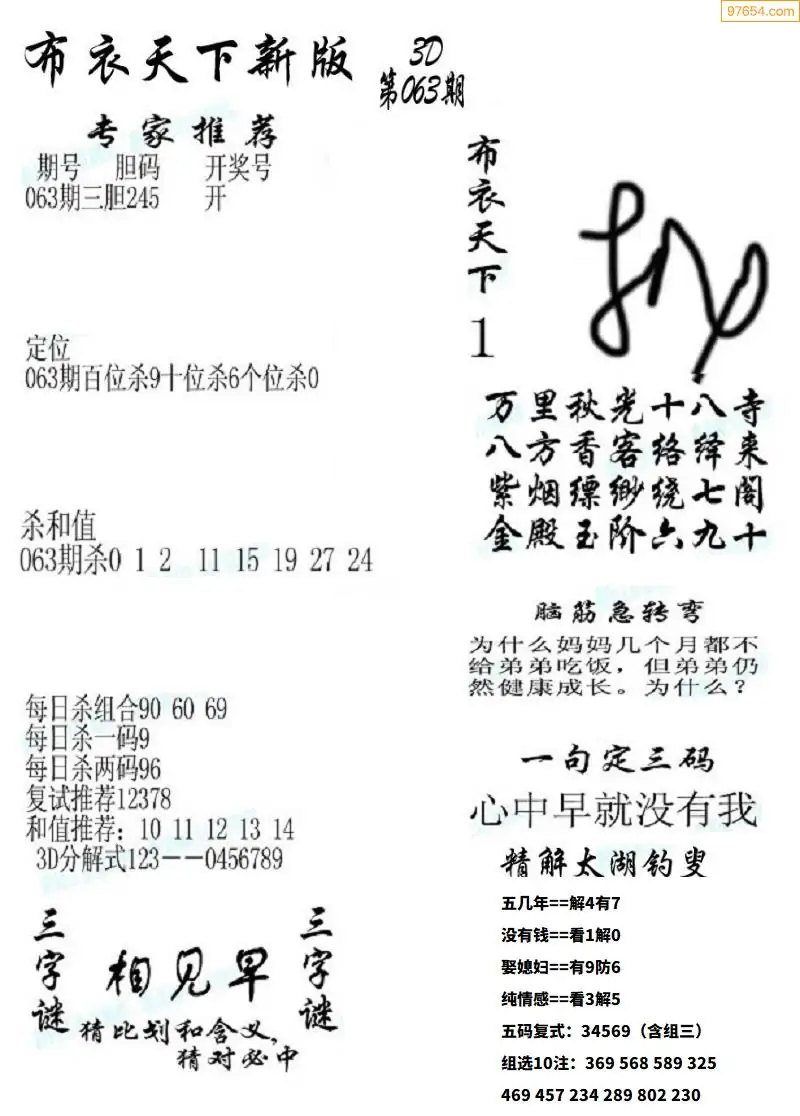 97654.com
布衣天下新版
3D
第063期
专家推荐
期号 胆码 开奖号
063期三胆245 开
定位
063期百位杀9十位杀6个位杀0
杀和值
063期杀0 1 2 11 15 19 27 24
每日杀组合90 60 69
每日杀一码9
每日杀两码96
复试推荐12378
和值推荐：10 11 12 13 14
3D分解式123——0456789
三字谜
相见早
三字谜
猜比划和含义，
猜对必中
布衣天下
1
万里秋光十八寺
八方香客络绎来
紫烟缥缈绕七阁
金殿玉阶六九十
脑筋急转弯
为什么妈妈几个月都不
给弟弟吃饭，但弟弟仍
然健康成长。为什么？
一句定三码
心中早就没有我
精解太湖钓叟
五几年==解4有7
没有钱==看1解0
娶媳妇==有9防6
纯情感==看3解5
五码复式：34569（含组三）
组选10注：369 568 589 325
469 457 234 289 802 230